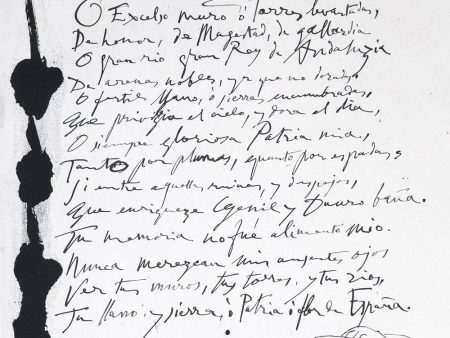 O Excelso muro ó torres levantadas,
De honor, de Magestad, de gallardia
O gran rio gran Rey de Andaluzia
De arenas nobles, ya que no doradas
O fertil llano, ó sierras encumbradas,
Que privilegia el cielo, y dora el dia,
O siempre gloriosa Patria mia,
Tanto por plumas, quanto por espadas,
Si entre aquellas ruinas, y despojos,
Que enriqueze Genil y Dauro baña.
Tu memoria no fué alimento mio.
Nunca merezcan mis ausentes ojos
Ver tus muros, tus torres, y tus rios,
Tu llano, y sierra, ó Patria ó flor de España.